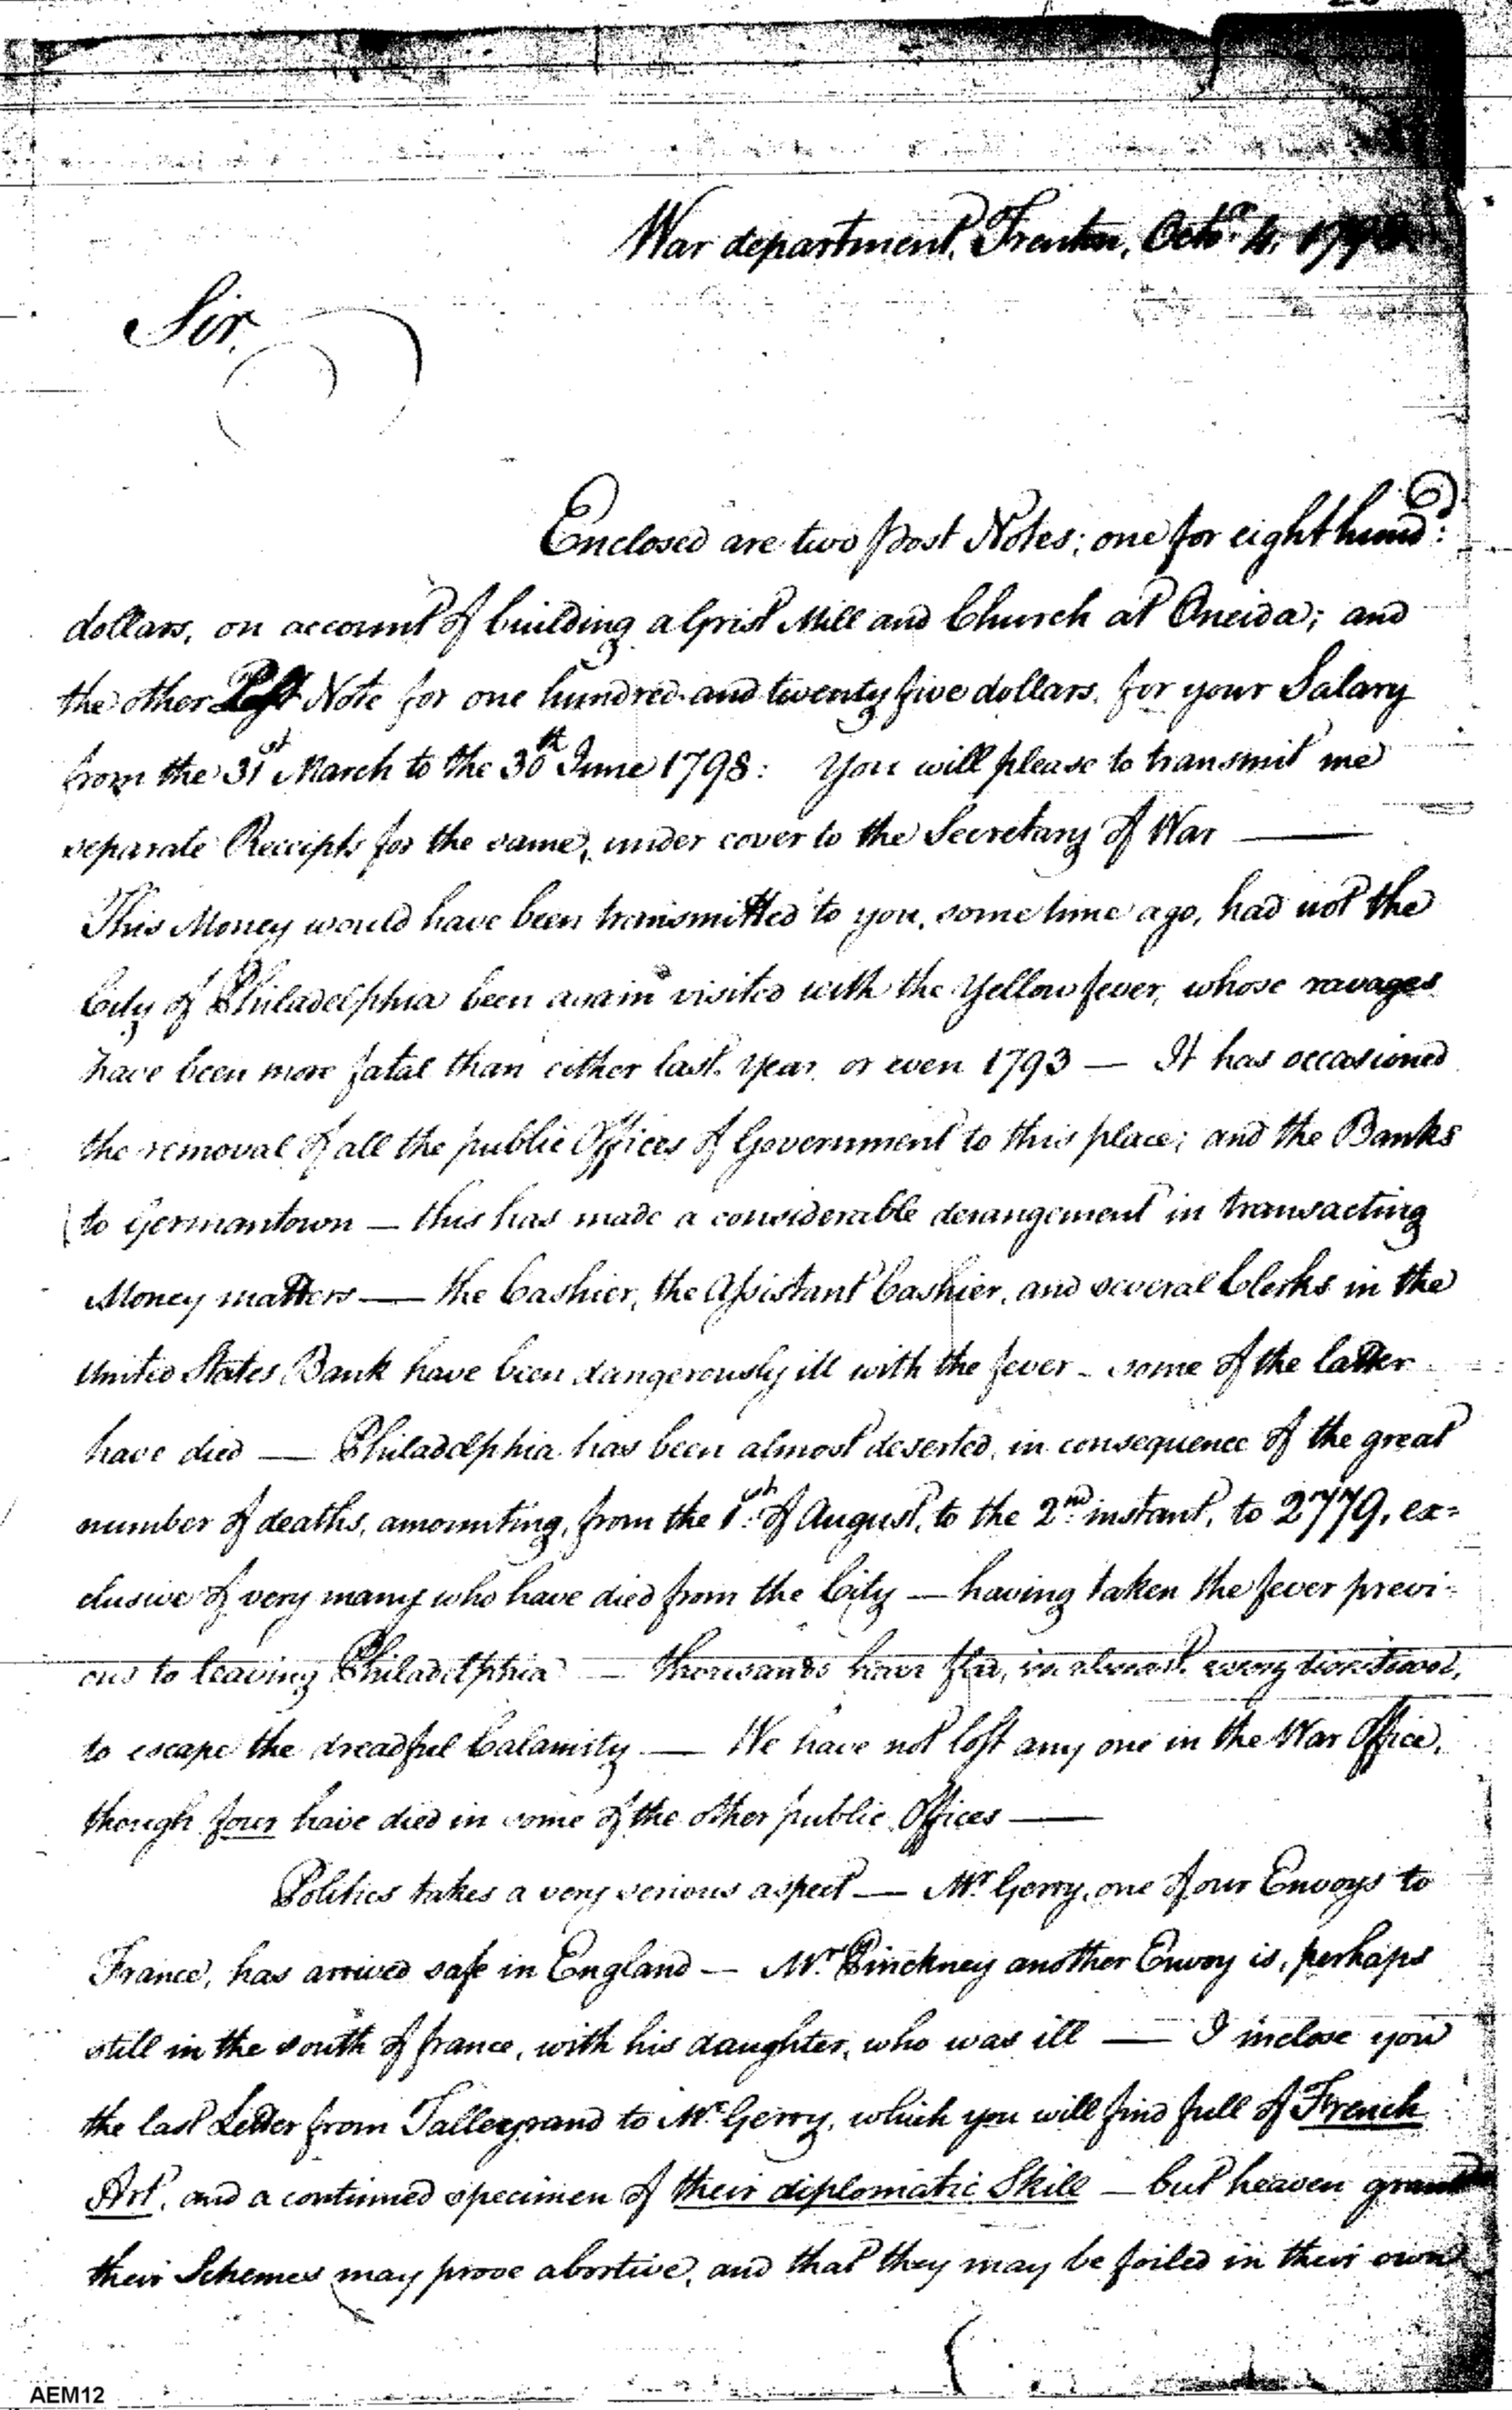 War department, Trenton, Octo.r 4, 1798
Sir,
Enclosed are two post Notes; one for eight hund.d:
dollars, on account of building a Grist Mill and Church at Oneida; and
the other Post Note for one hundred and twenty five dollars, for your Salary
from the 31st March to the 30th June 1798: You will please to transmit me
separate Receipts for the same, under cover to the Secretary of War —
This Money would have been transmitted to you, some time ago, had not the
City of Philadelphia been again visited with the Yellow fever, whose ravages
have been more fatal than either last Year, or even 1793 — It has occasioned
the removal of all the public Offices of Government to this place; and the Banks
to Germantown — this has made a considerable derangement in transacting
Money matters — the Cashier, the Assistant Cashier, and several Clerks in the
United States Bank have been dangerously ill with the fever – some of the latter
have died — Philadelphia has been almost deserted, in consequence of the great
number of deaths, amounting, from the 1st of August, to the 2nd instant, to 2779, ex=
clusive of very many who have died from the City — having taken the fever previ=
ous to leaving Philadelphia — thousands have fled, in almost every direction,
to escape the dreadful Calamity — We have not lost any one in the War Office,
though four have died in some of the other public Offices —
Politics takes a very serious aspect — Mr. Gerry, one of our Envoys to
France, has arrived safe in England — Mr. Pinckney another Envoy is, perhaps
still in the south of france, with his daughter, who was ill — I inclose you
the last Letter from Talleyrand to Mr. Gerry, which you will find full of French
Art, and a continued specimen of their diplomatic Skill — but heaven grant
their Schemes may prove abortive, and that they may be foiled in their own
AEM12